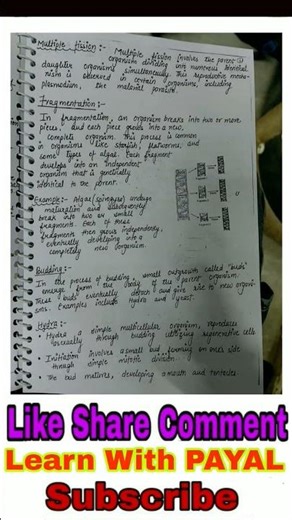 Multiple fission :-
Multiple fission involves the parent
organism dividing into numerous
daughter organisms simultaneously. This reproductive mecha-
nism is observed in certain organisms, including
plasmodium, the malarial parasite.
Fragmentation :-
In fragmentation, an organism breaks into two or more
pieces, and each piece grows into a new,
complete organism. This process is common
in organisms like starfish, flatworms, and
some types of algae. Each fragment
develops into an independent
organism that is genetically
identical to the parent.
Example :- Algae (spirogyra) undergo
maturation and subsequently
break into two or small
fragments. Each of these
fragments then grows independently,
eventually developing into a
completely new organism.
Budding :-
In the process of budding, small outgrowth called "buds"
emerge from the body of the parent organism.
These buds eventually detach and give rise to new organi-
sms. Examples include Hydra and yeast.
Hydra :-
• Hydra a simple multicellular organism, reproduces
asexually through budding utilizing regenerative cells
• Initiation involves a small bud forming on one's side
through simple mitotic division.
• The bud matures, developing a mouth and tentacles
Like Share Comment
Learn With PAYAL
Subscribe